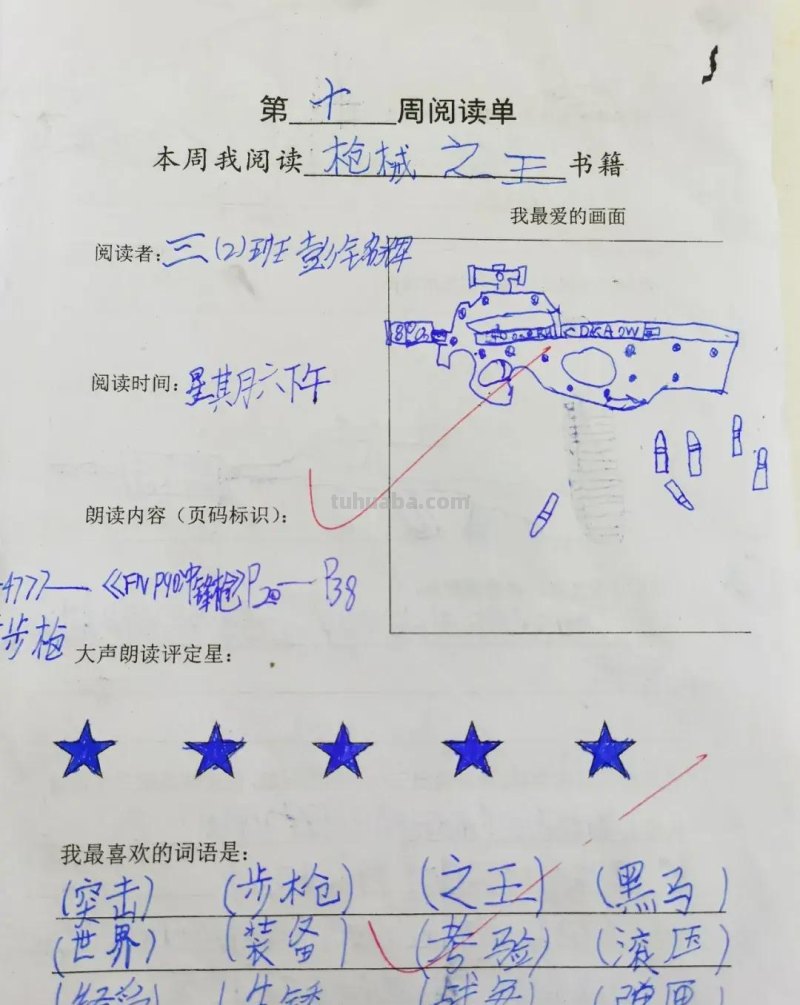 第十周阅读单
本周我阅读枪械之王书籍
我最爱的画面
阅读者:三(2)班
阅读时间:星期六下午
tuhuaba.com
朗读内容（页码标识）:
4777—《FN P90冲锋枪》P20—P38
步枪
大声朗读评定星:
我最喜欢的词语是:
(突击) (步枪) (之王) (黑马)
(世界) (装备) (考验) (滚压)